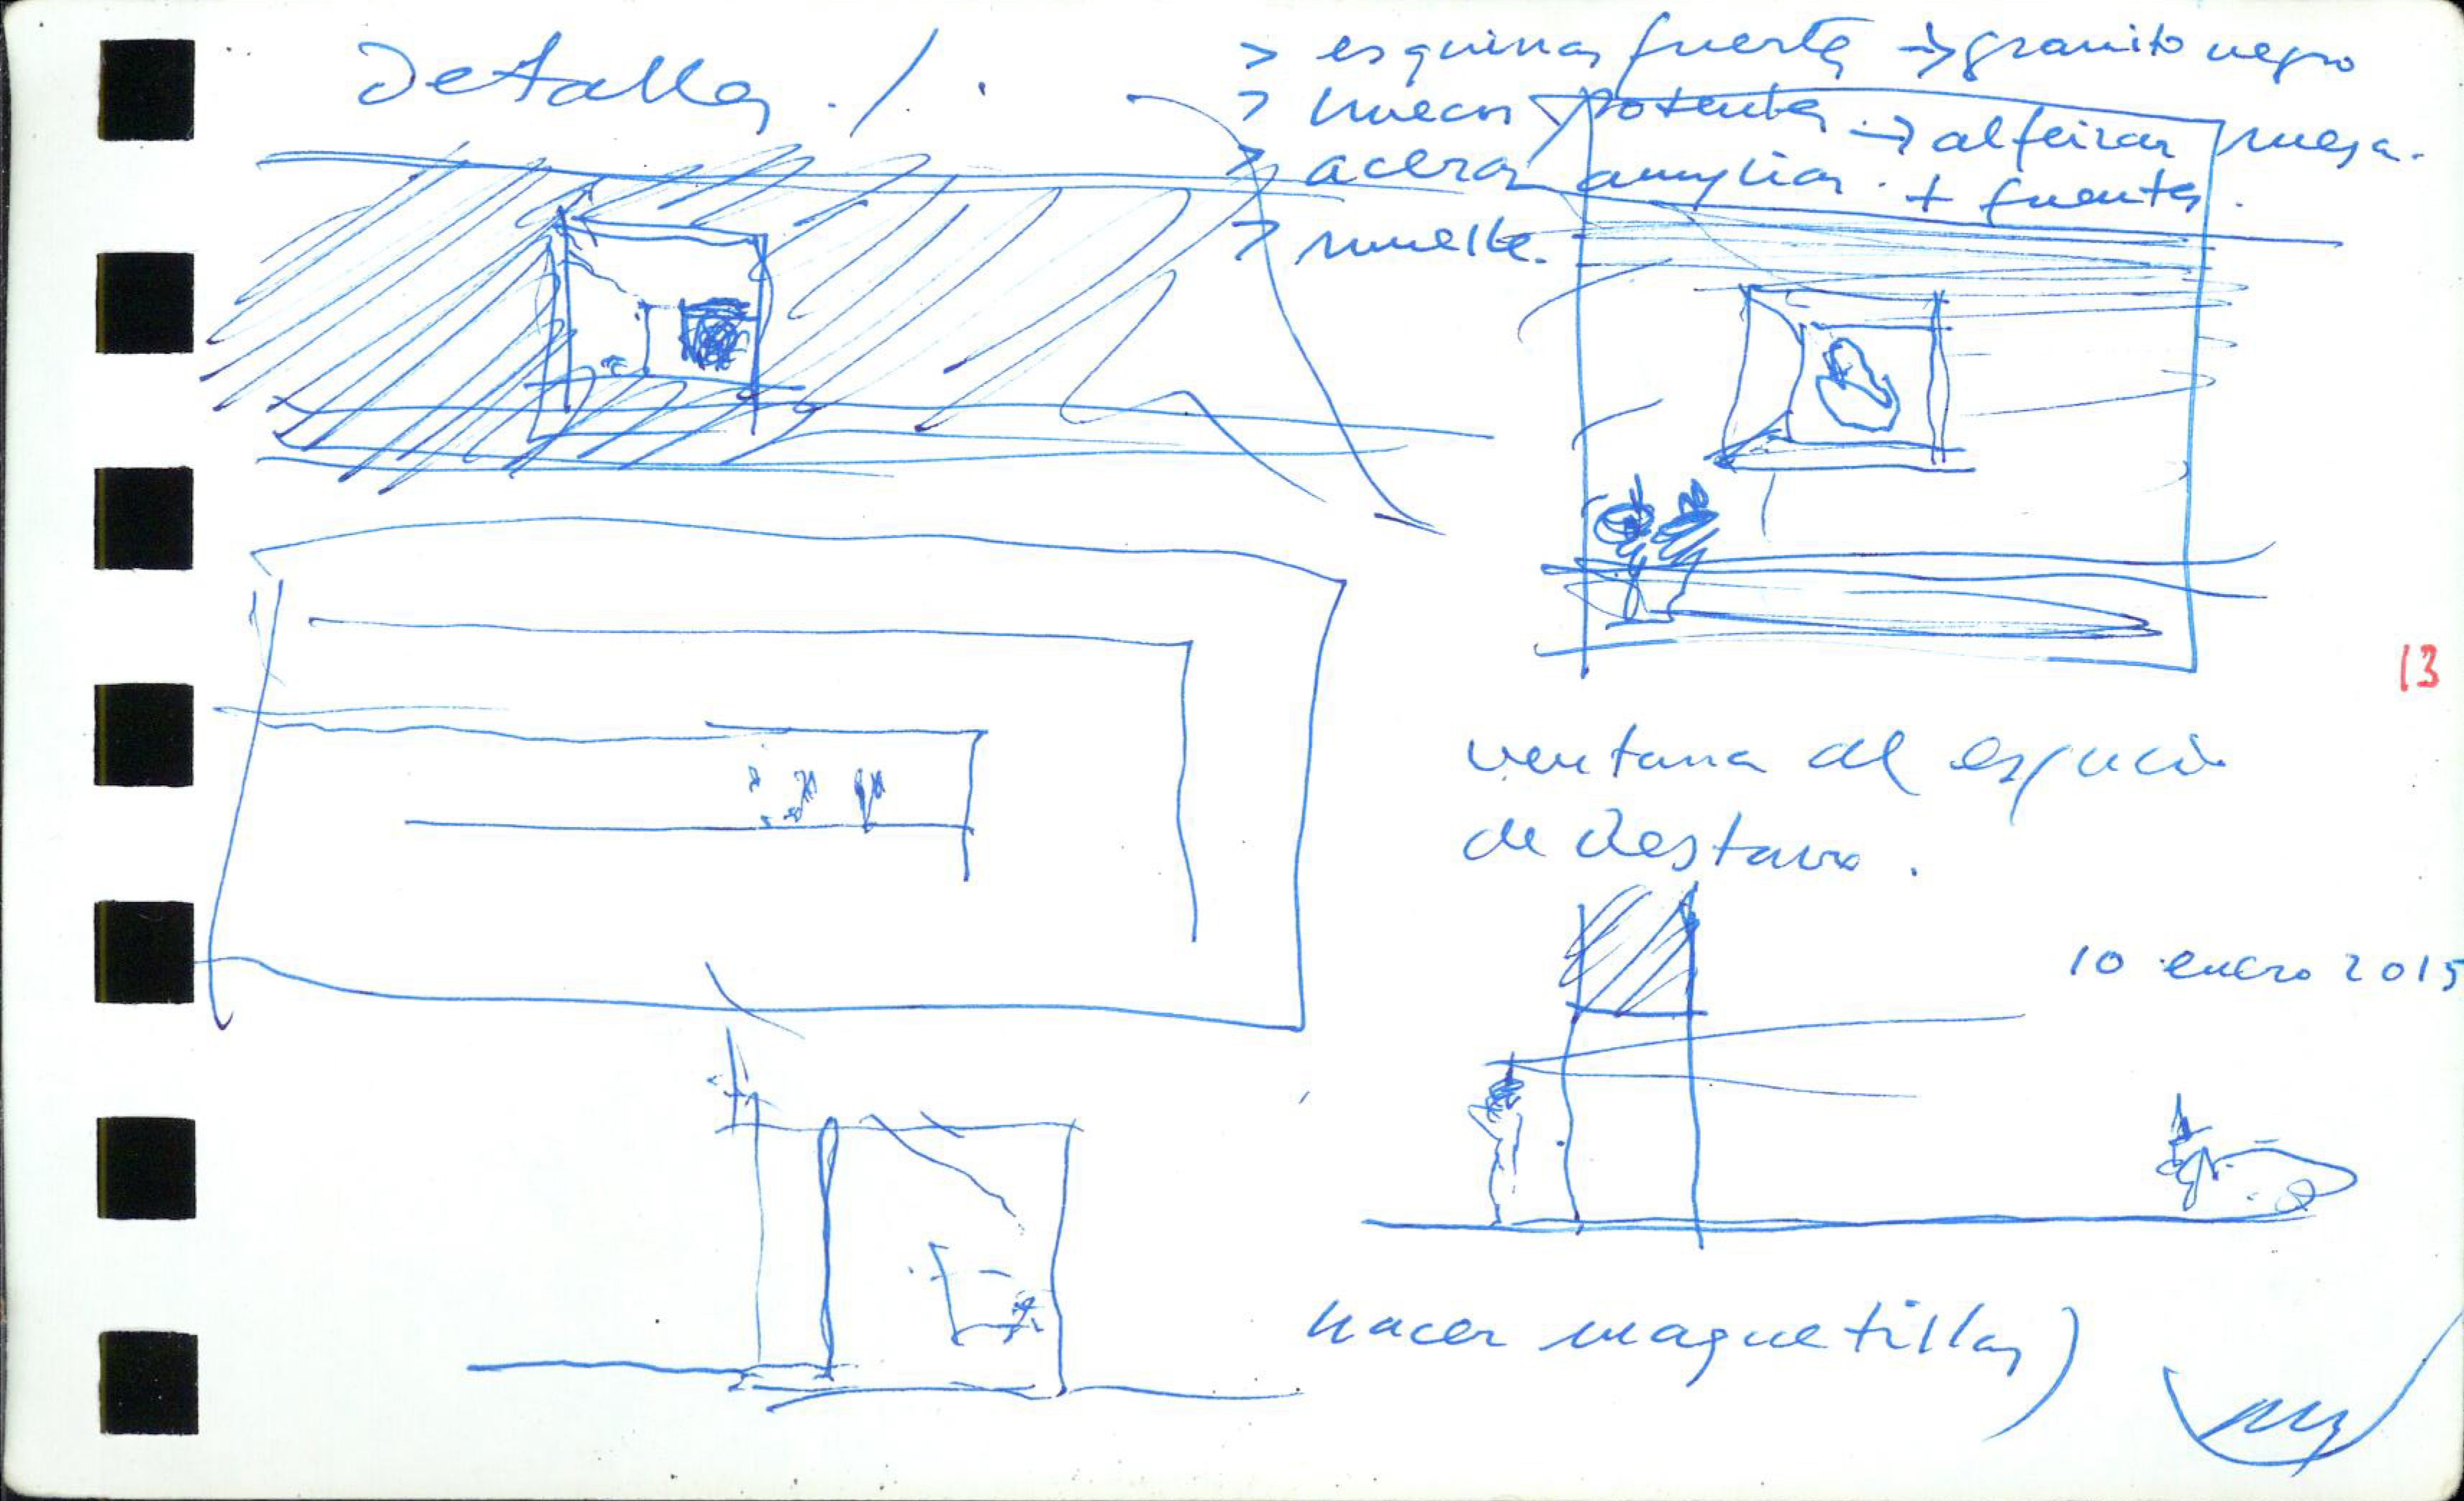 Detalles.
> esquinas fuertes → granito negro
> huecos potentes → alfeizar mesa.
> aceras amplias. + fuentes.
> muelle.
13
ventana al espacio
de
10 enero 2015
hacer maquetillas)